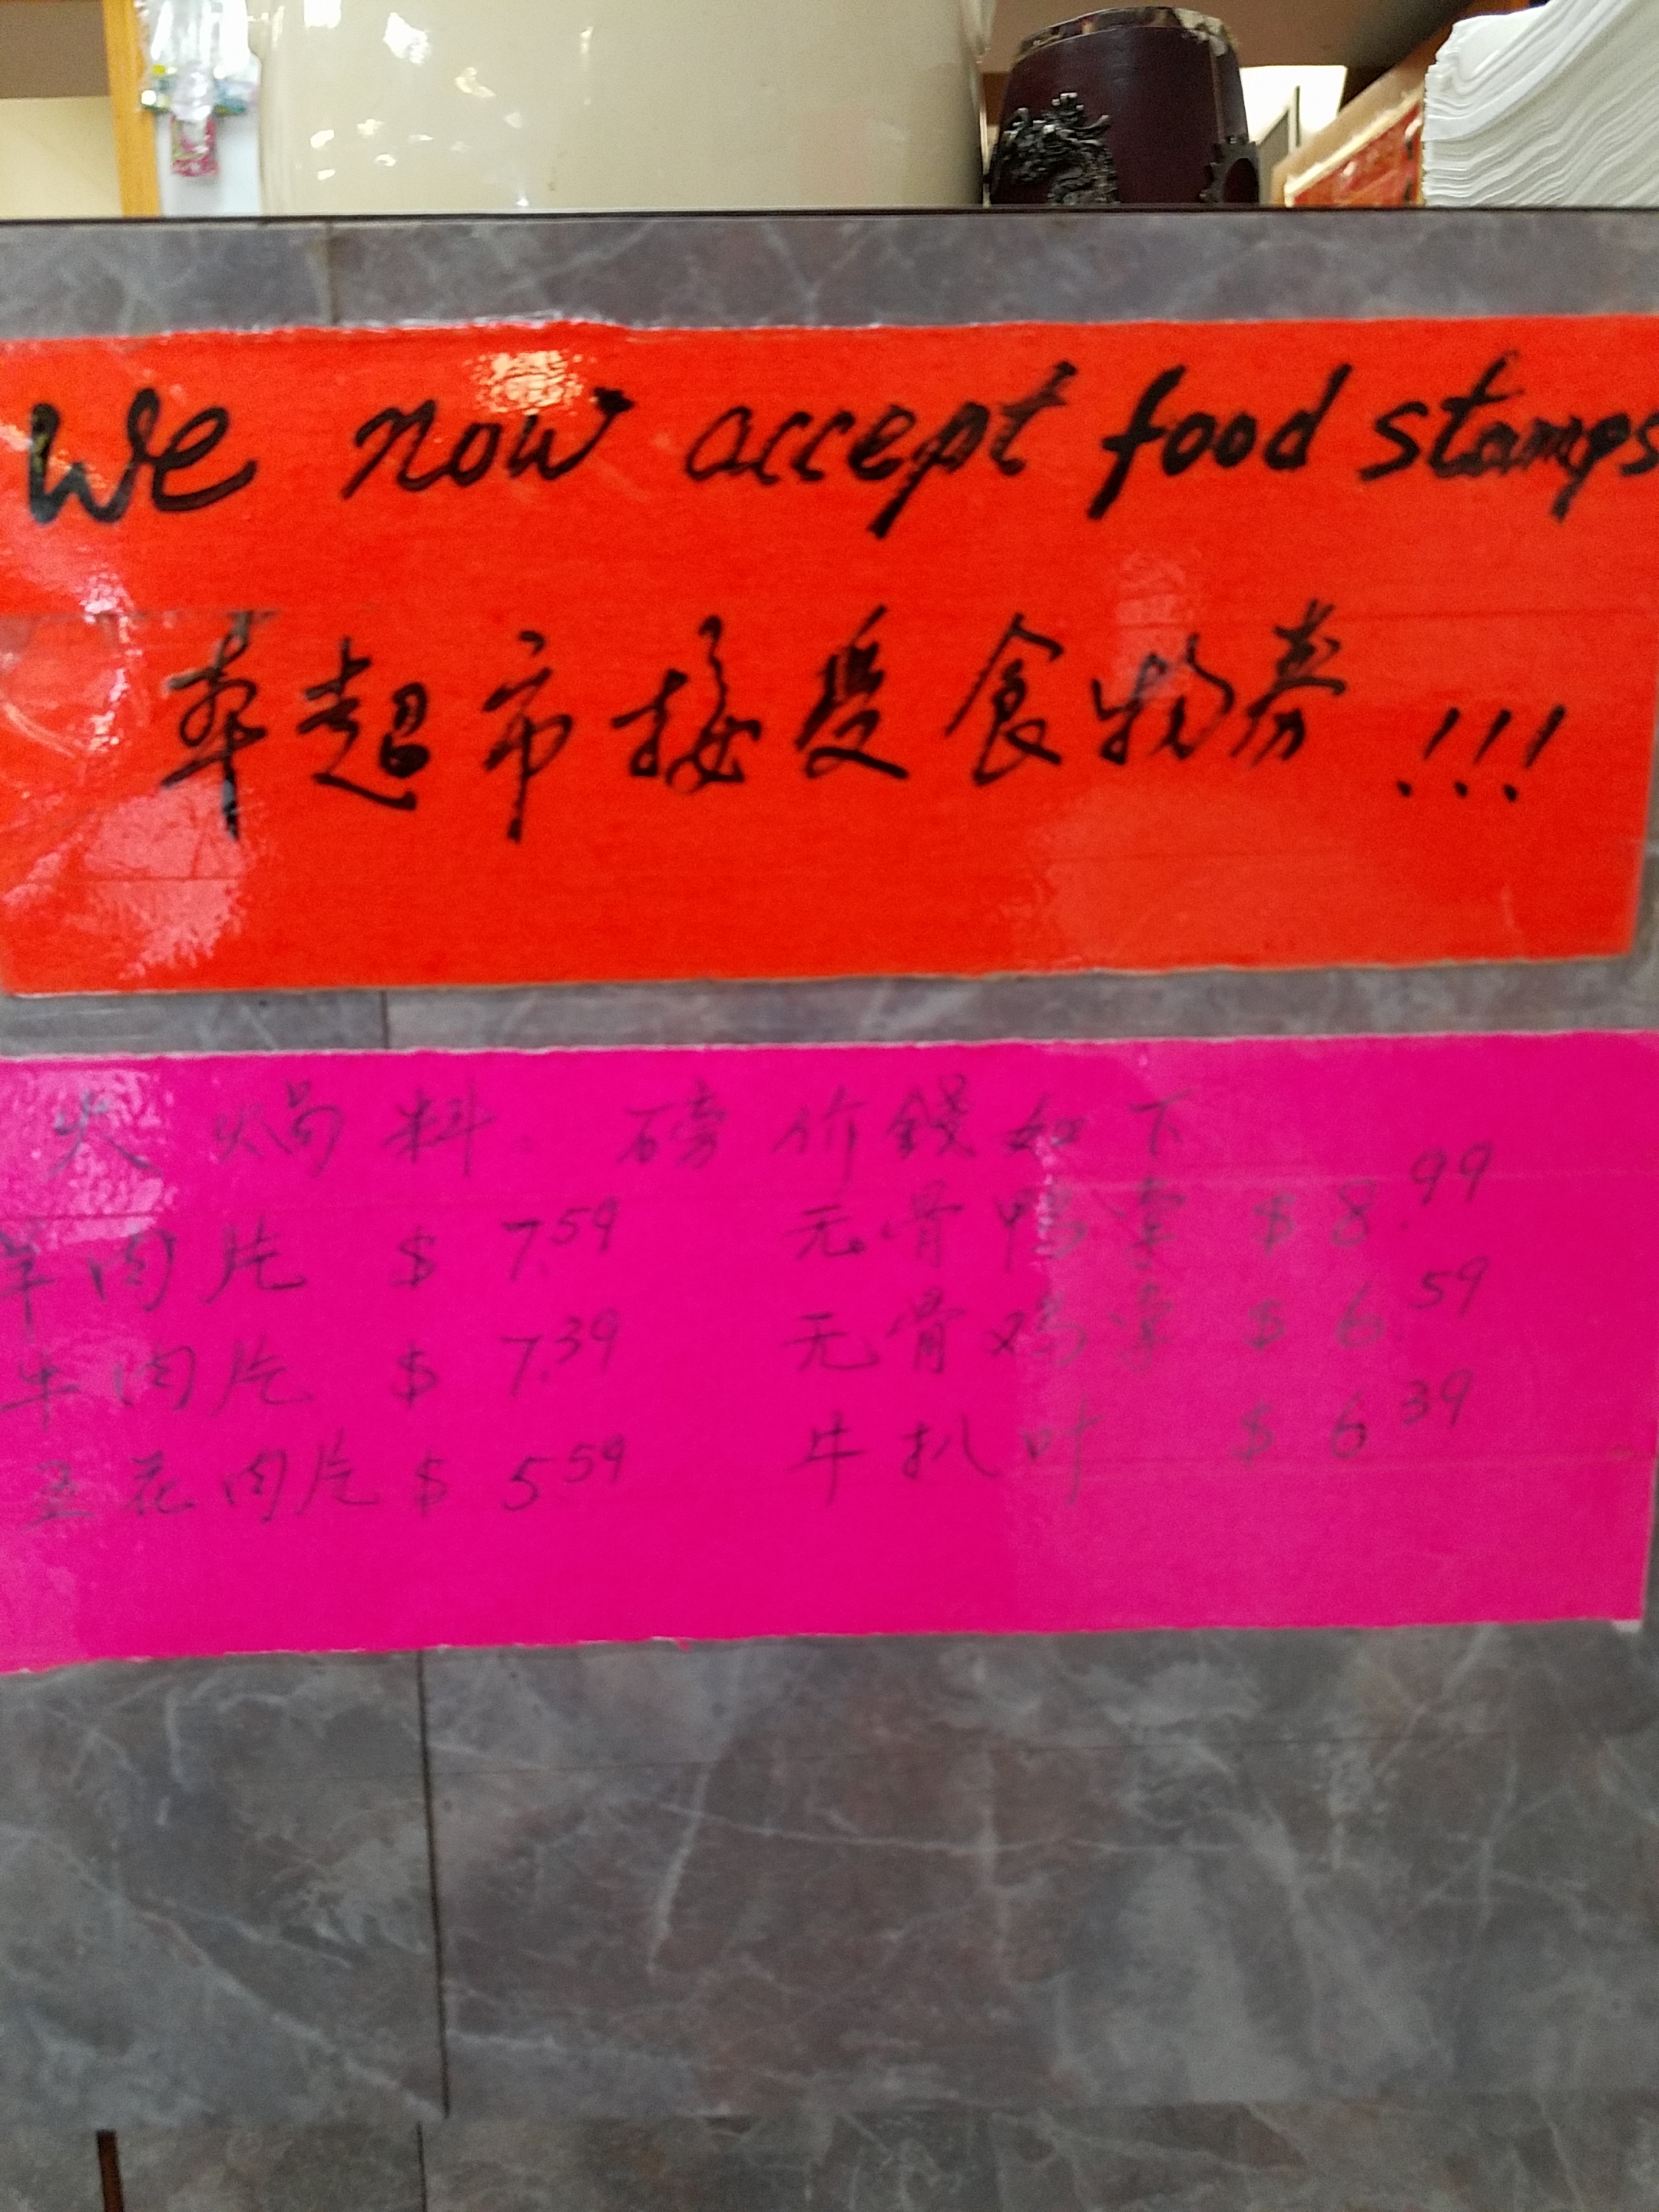 We now accept food stamps
本超市接受食物券!!!
火焗料。磅价錢如下
羊肉片 $7.59 无骨鸭掌 $8.99
牛肉片 $7.39 无骨鸡掌 $6.59
五花肉片 $5.59 牛扒叶 $6.39